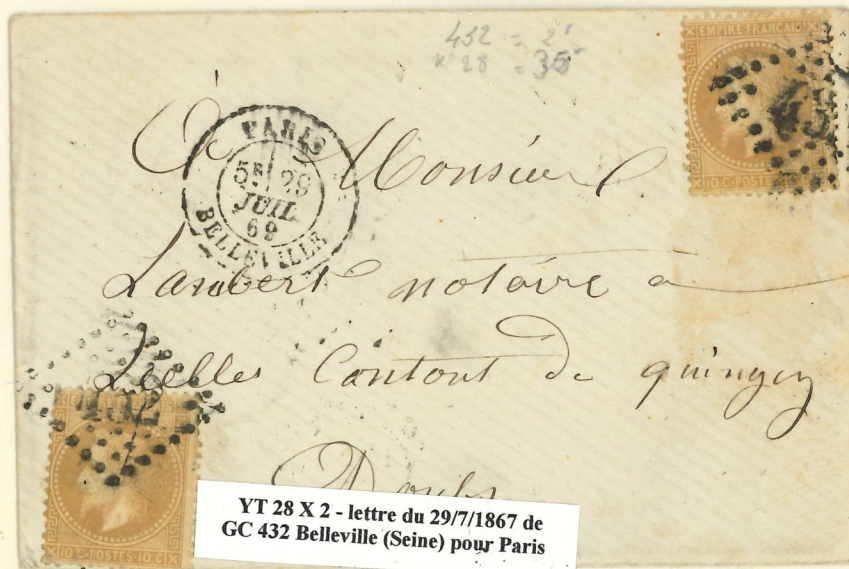 432 = 2
N° 28 = 35
EMPIRE FRANCAIS
10.C·POSTES·10.C
PARIS
5E 29
JUIL.
69
BELLEVILLE
A Monsieur
Lambert notaire à
Canton de quingey
432
10.C·POSTES·10.C
Doubs
YT 28 X 2 - lettre du 29/7/1867 de
GC 432 Belleville (Seine) pour Paris